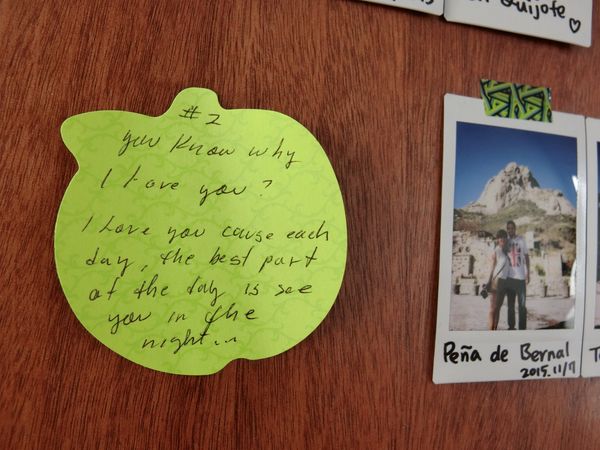 #2
you know why
I Love you?
I Love you cause each
day, the best part
of the day is see
you in the
night...
Quijote ♡
Peña de Bernal
2015.11/7